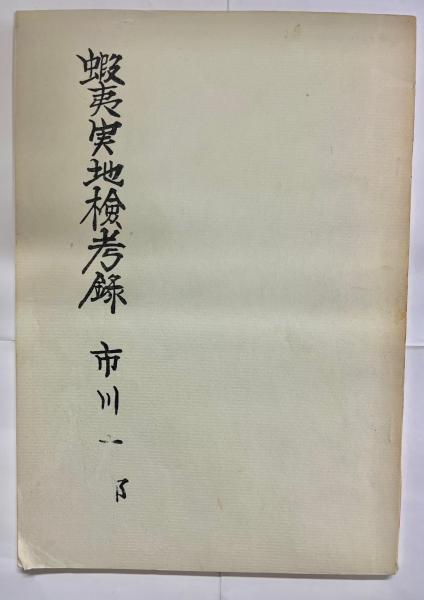 蝦夷実地檢考録 市川十郎